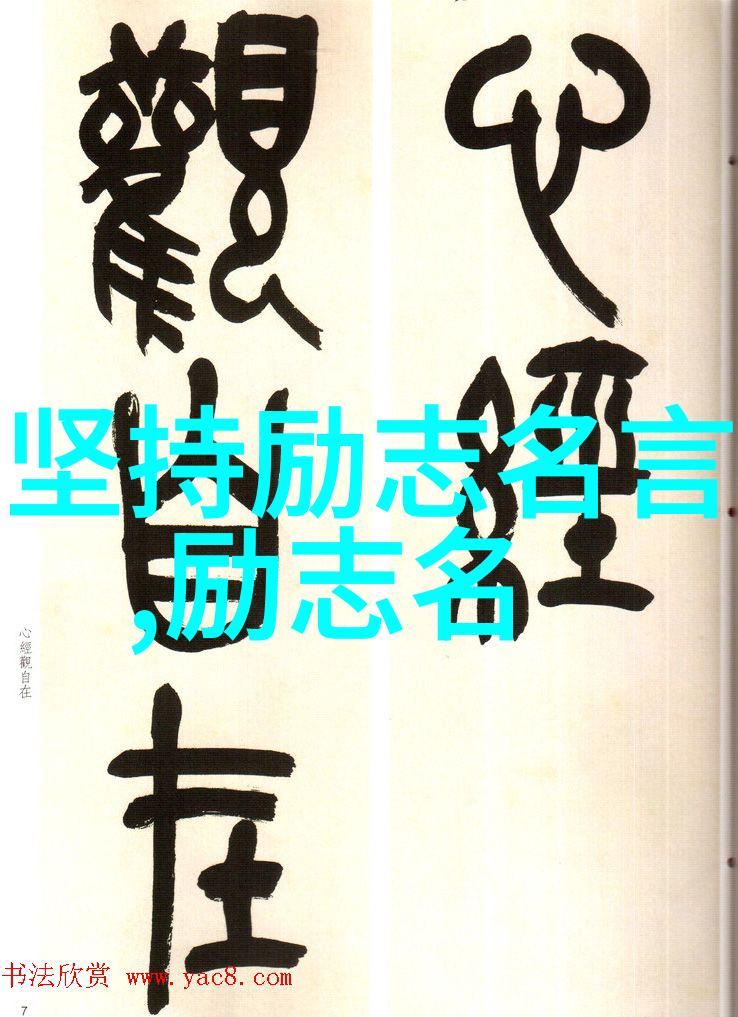 心經
觀自在
坚持励志名言
,励志名
心經觀自在
书法欣赏 www.yac8.com
7